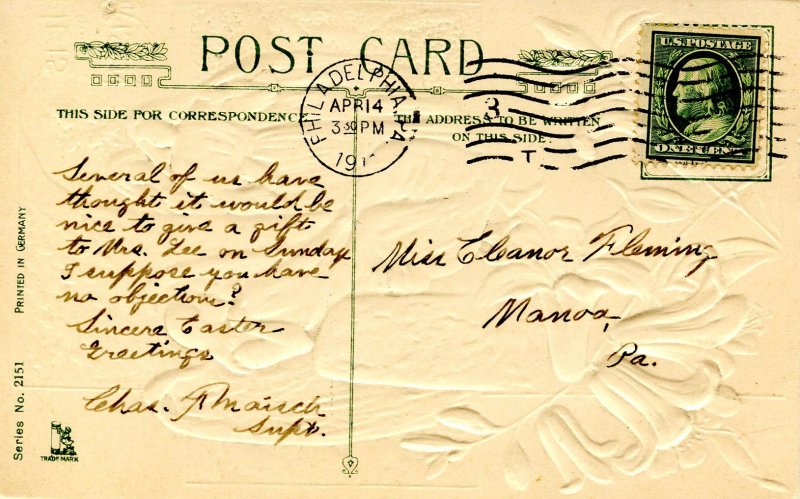 POST CARD
THIS SIDE FOR CORRESPONDENCE
THE ADDRESS TO BE WRITTEN
ON THIS SIDE.
PHILADELPHIA, PA.
APR 14
3 30 PM
191
3
T
U.S. POSTAGE
ONE CENT
Several of us have
thought it would be
nice to give a gift
to Mrs. Lee on Sunday
I suppose you have
no objection?
Sincere Easter
Greetings
Chas. F. Maisch
Supt.
Miss Eleanor Fleming
Manoa,
Pa.
Series No. 2151 PRINTED IN GERMANY
TRADE MARK